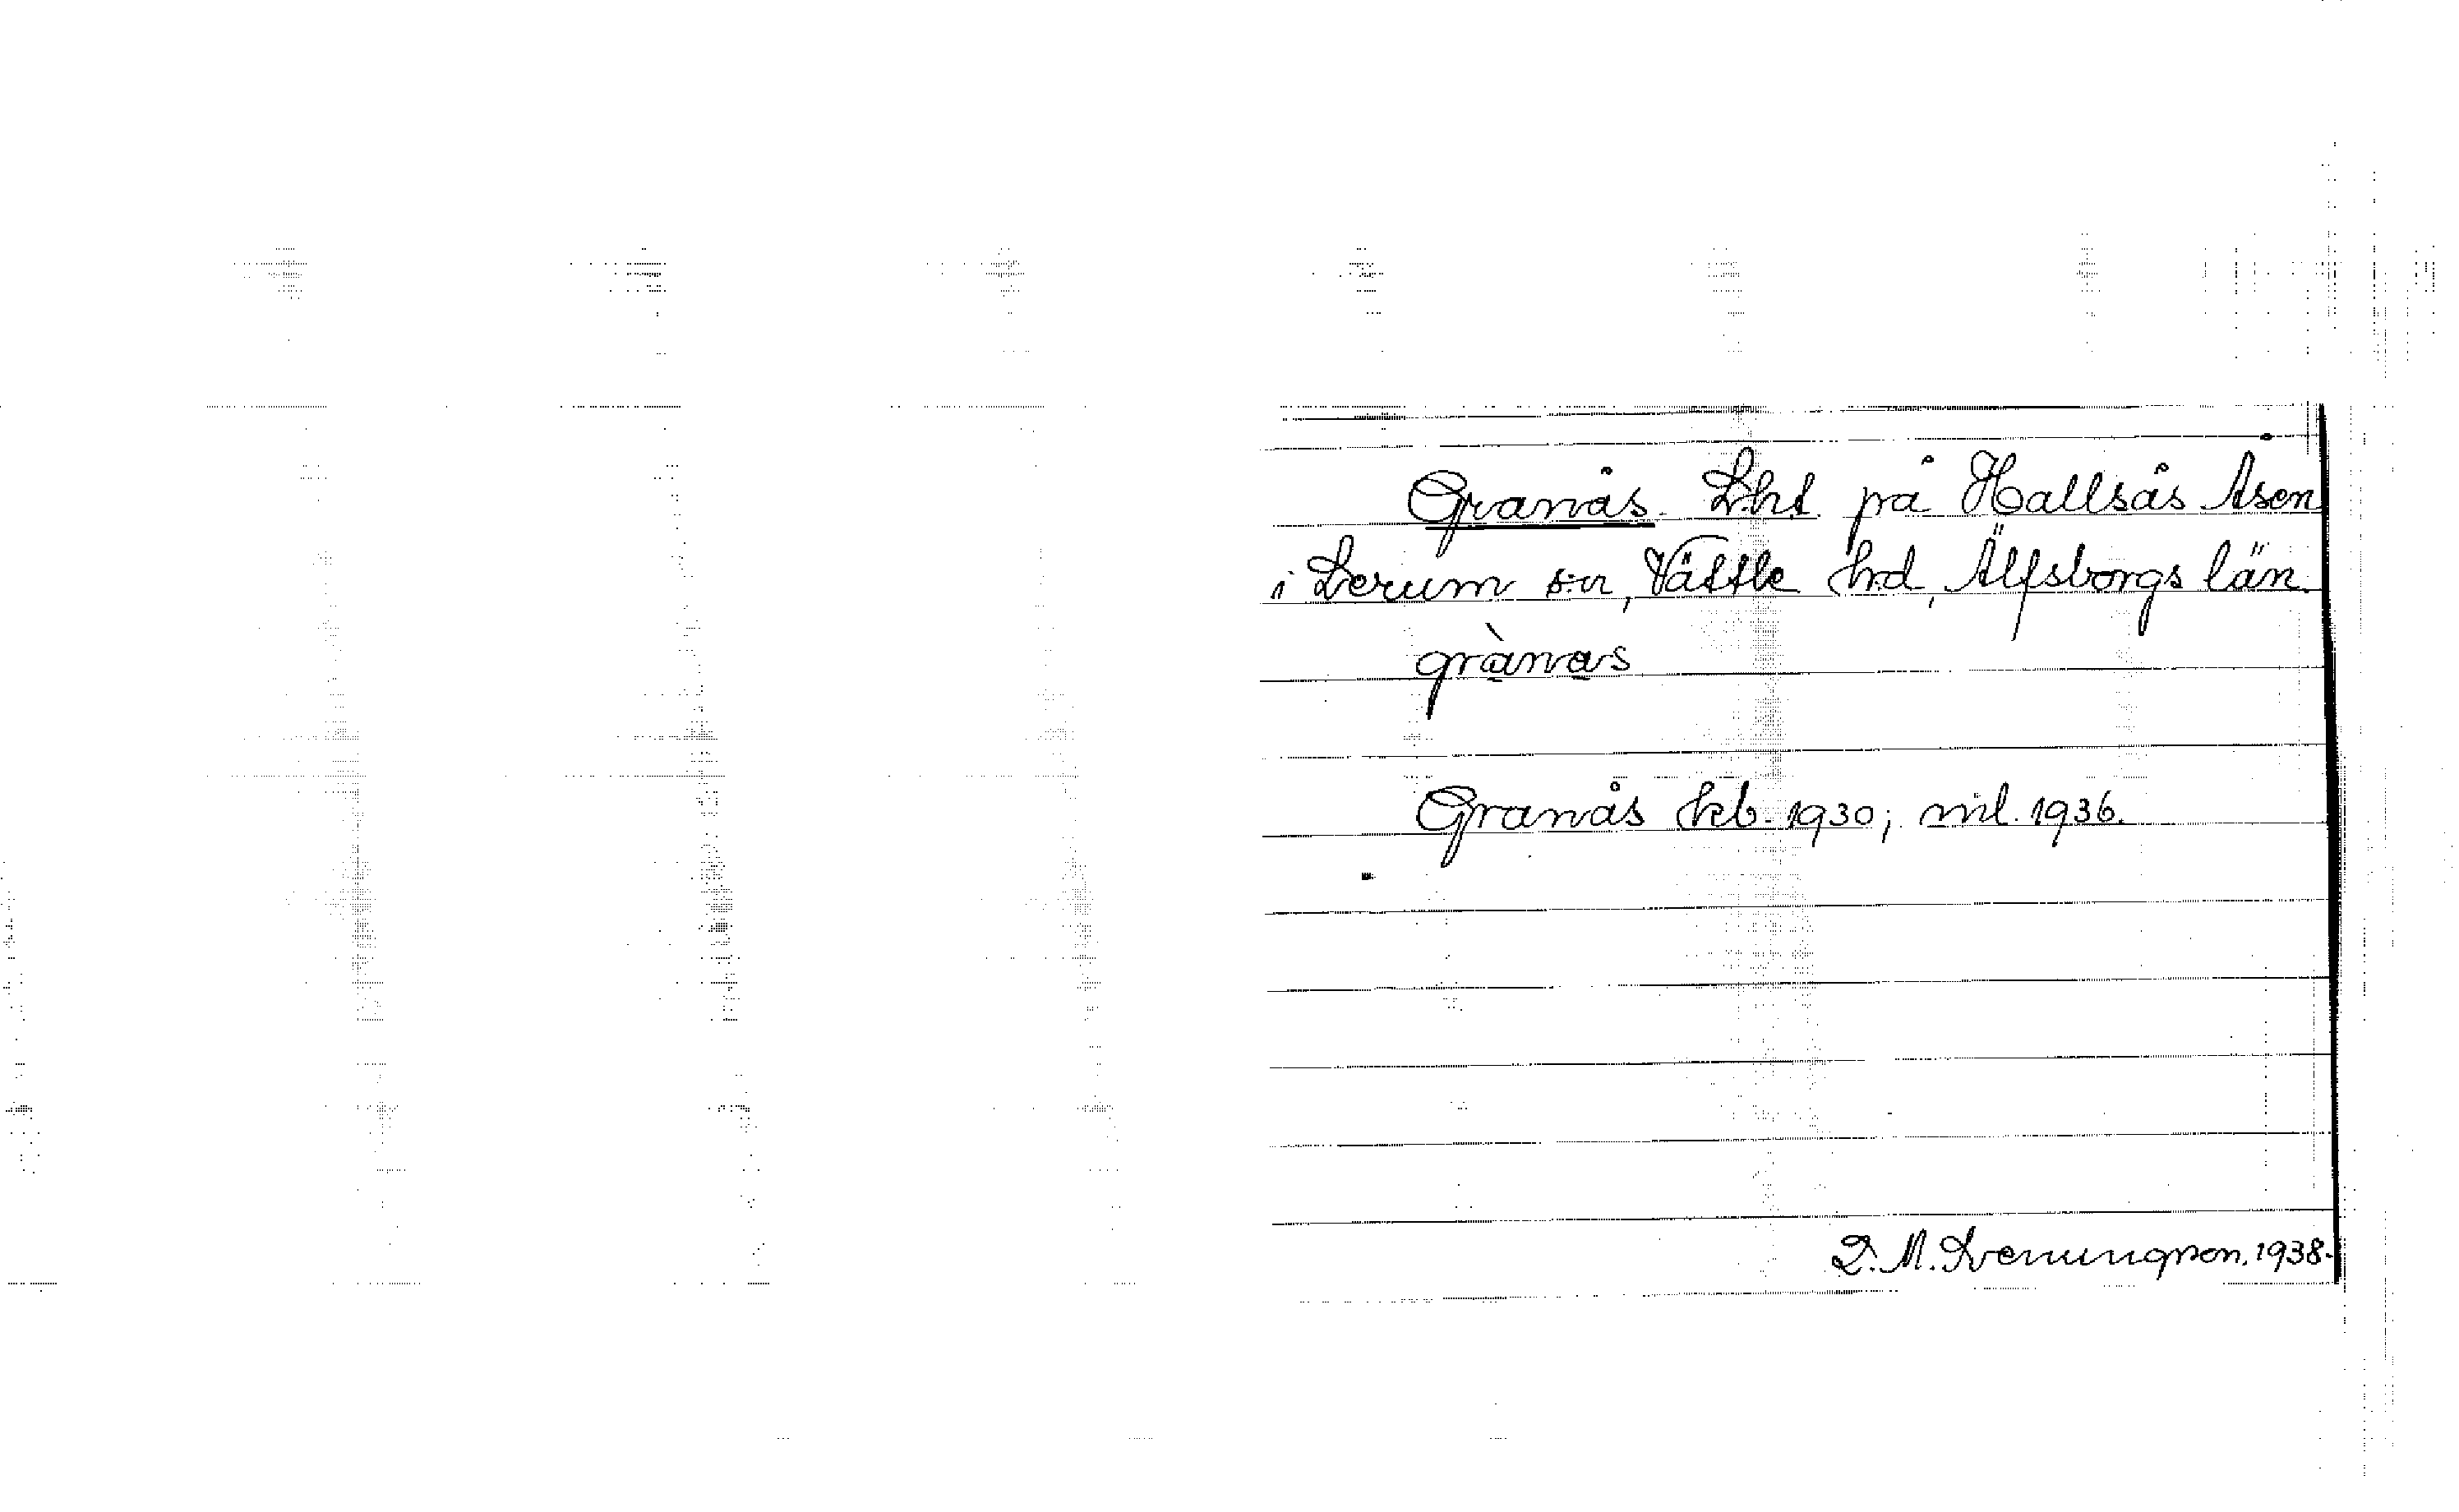 Granås. Lht. på Hallsås Åsen
i Lerum sn, Vättle hd, Älfsborgs län.
grànas
Granås kb. 1930; ml. 1936.
D. M. Svenungson. 1938.